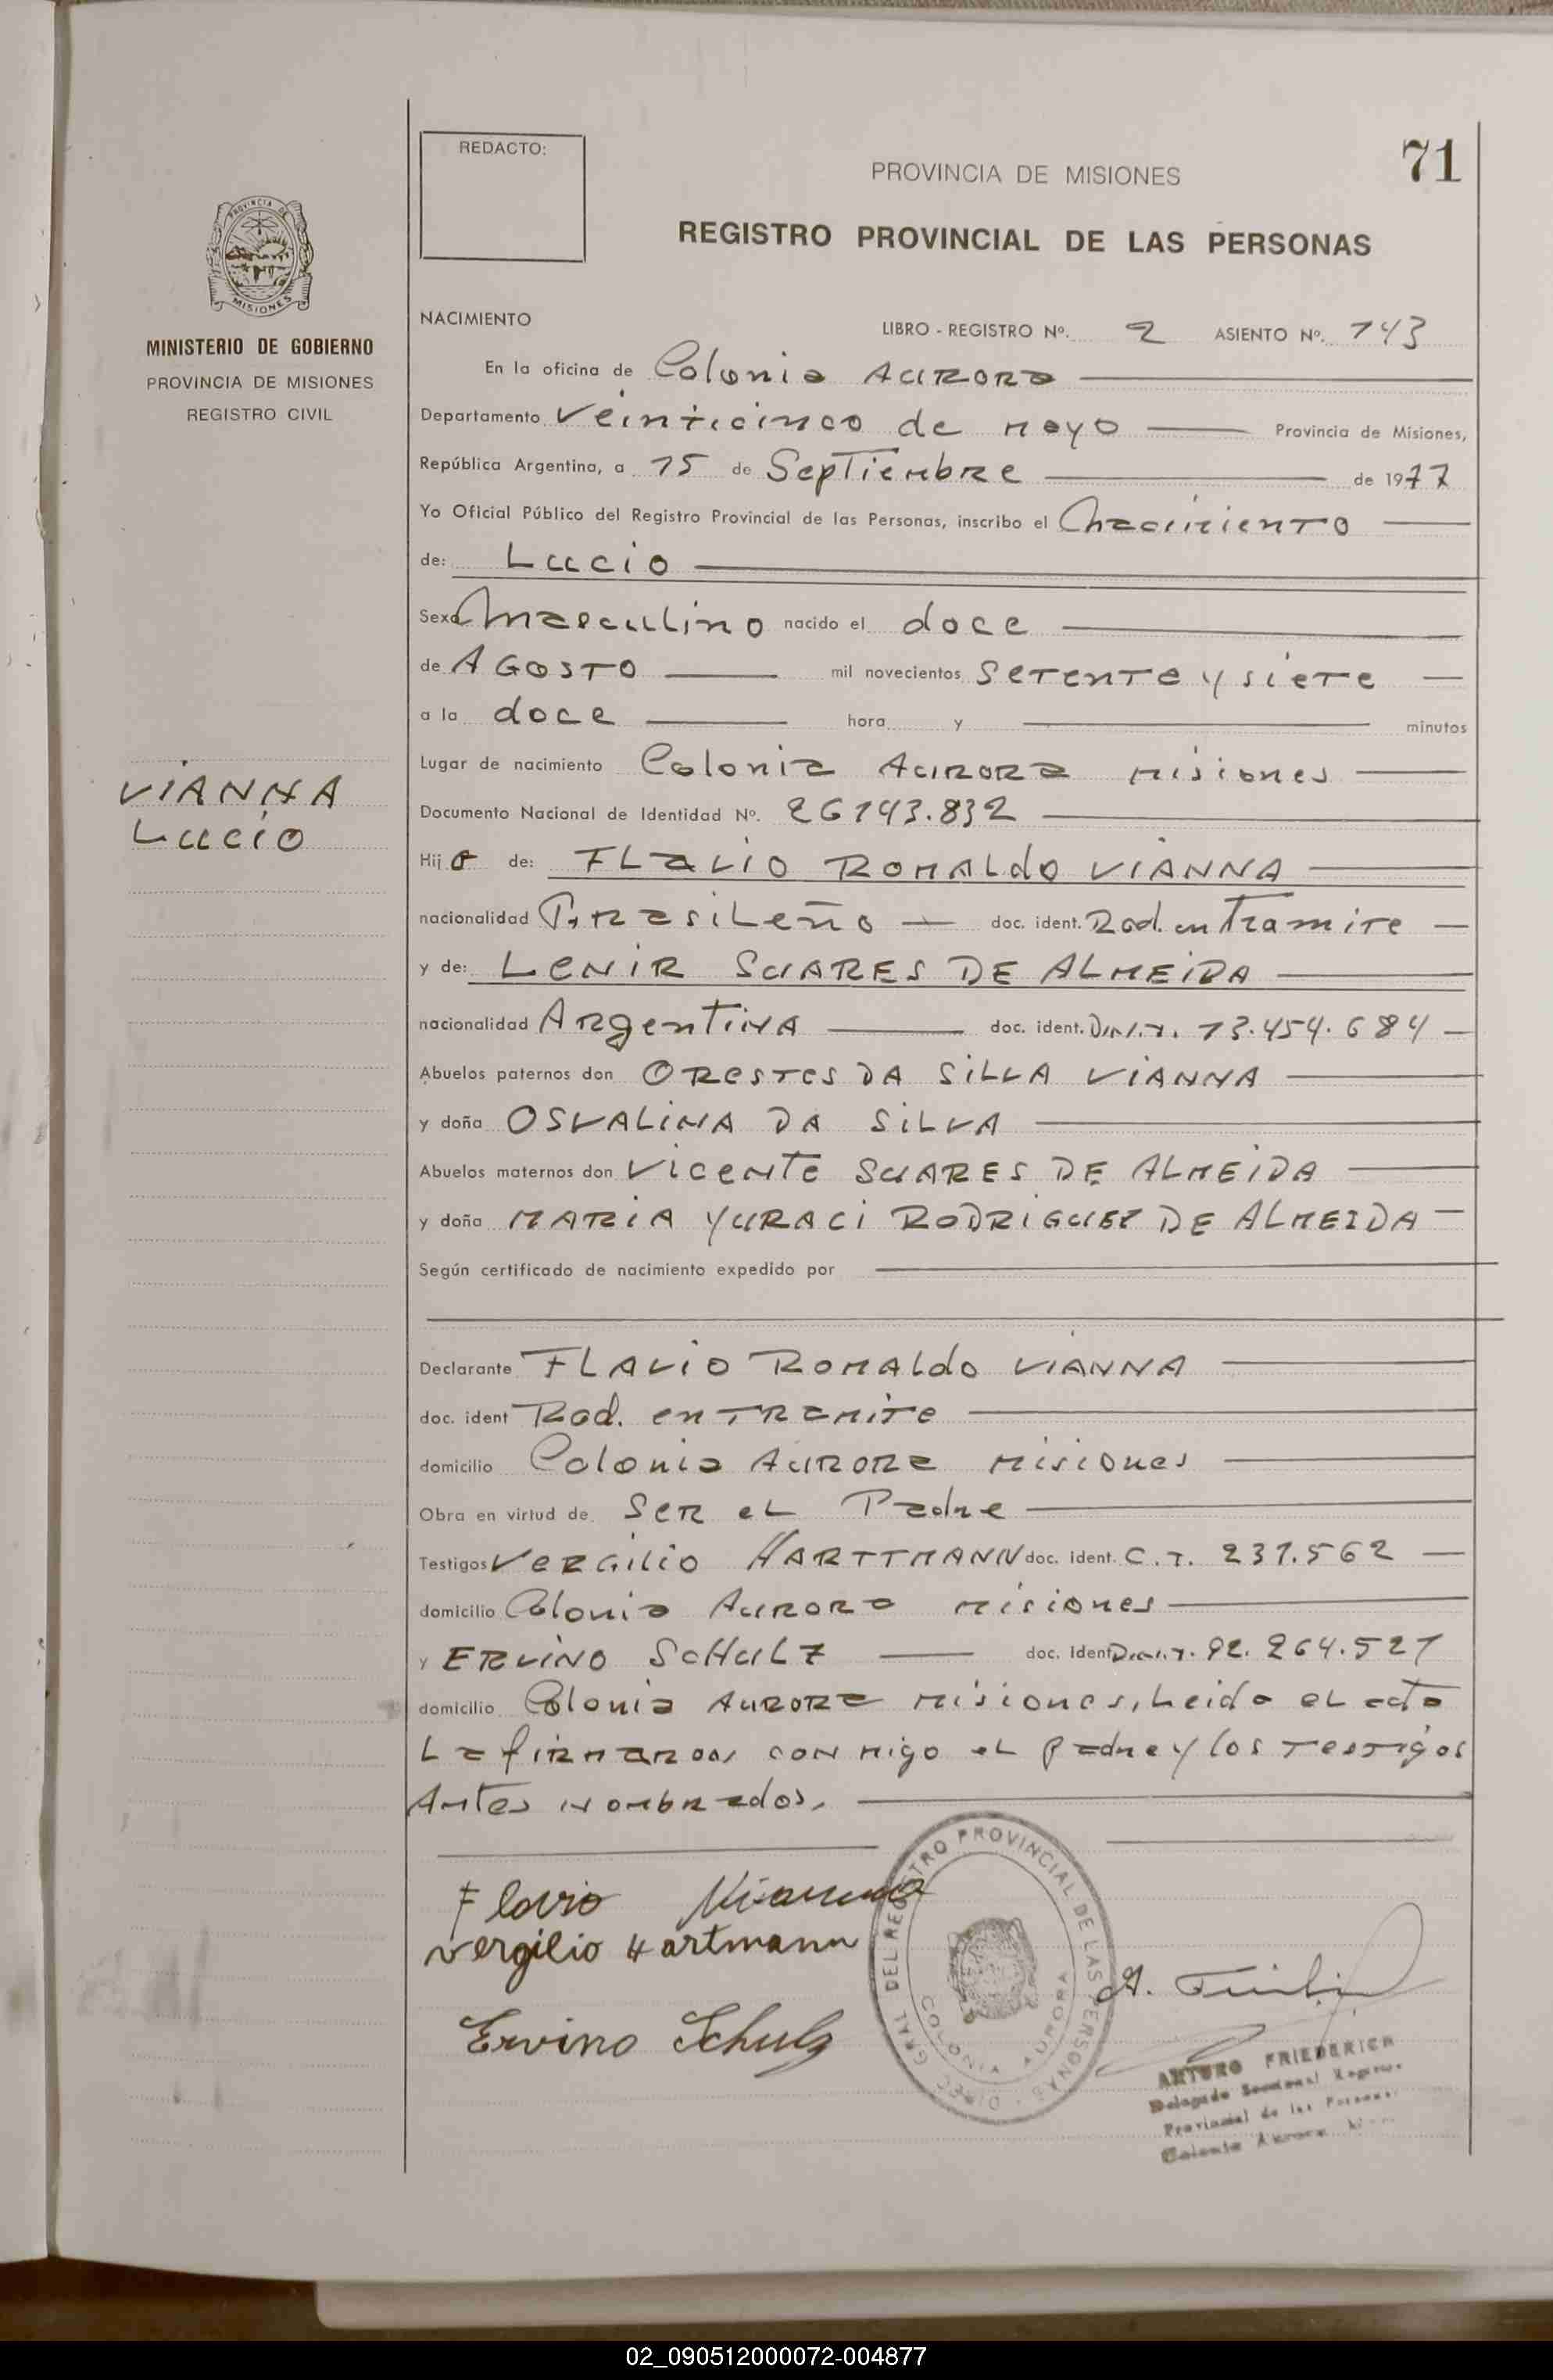 REDACTO:
PROVINCIA DE MISIONES
71
REGISTRO PROVINCIAL DE LAS PERSONAS
PROVINCIA DE MISIONES
MINISTERIO DE GOBIERNO
PROVINCIA DE MISIONES
REGISTRO CIVIL
NACIMIENTO
LIBRO - REGISTRO Nº. 2 ASIENTO Nº. 143
En la oficina de Colonia Aurora
Departamento Veinticinco de Mayo Provincia de Misiones,
República Argentina, a 15 de Septiembre de 1977
Yo Oficial Público del Registro Provincial de las Personas, inscribo el Nacimiento
de: Lucio
Sexo Masculino nacido el doce
de Agosto mil novecientos setenta y siete
a la doce hora y minutos
Lugar de nacimiento Colonia Aurora Misiones
VIANNA
Lucio
Documento Nacional de Identidad Nº. 26143.832
Hij o de: FLavio ROMALdo VIANNA
nacionalidad Brasileño doc. ident. Rad. en Tramite
y de: LENIR SUARES DE ALMEIDA
nacionalidad Argentina doc. ident. D.N.I. 13.454.684
Abuelos paternos don ORESTES DA SILVA VIANNA
y doña OSVALINA DA SILVA
Abuelos maternos don Vicente SUARES DE ALMEIDA
y doña MARIA YURACI RODRIGUEZ DE ALMEIDA
Según certificado de nacimiento expedido por
Declarante FLAVIO ROMALdo VIANNA
doc. ident Rad. en Tramite
domicilio Colonia Aurora Misiones
Obra en virtud de Ser el Padre
Testigos VERGILIO HARTTMANN doc. ident. C.I. 231.562
domicilio Colonia Aurora Misiones
y ERVINO SCHULZ doc. ident D.N.I. 92.264.521
domicilio Colonia Aurora Misiones, Leida el acta
La firman con migo el padre y los testigos
Antes nombrados.
Flavio Vianna
Vergilio Hartmann
Ervino Schulz
DIREC. GRAL. DEL REGISTRO PROVINCIAL DE LAS PERSONAS
COLONIA AURORA
ARTURO FRIEDERICH
Delegado Seccional Registro
Provincial de las Personas
Colonia Aurora
02_090512000072-004877